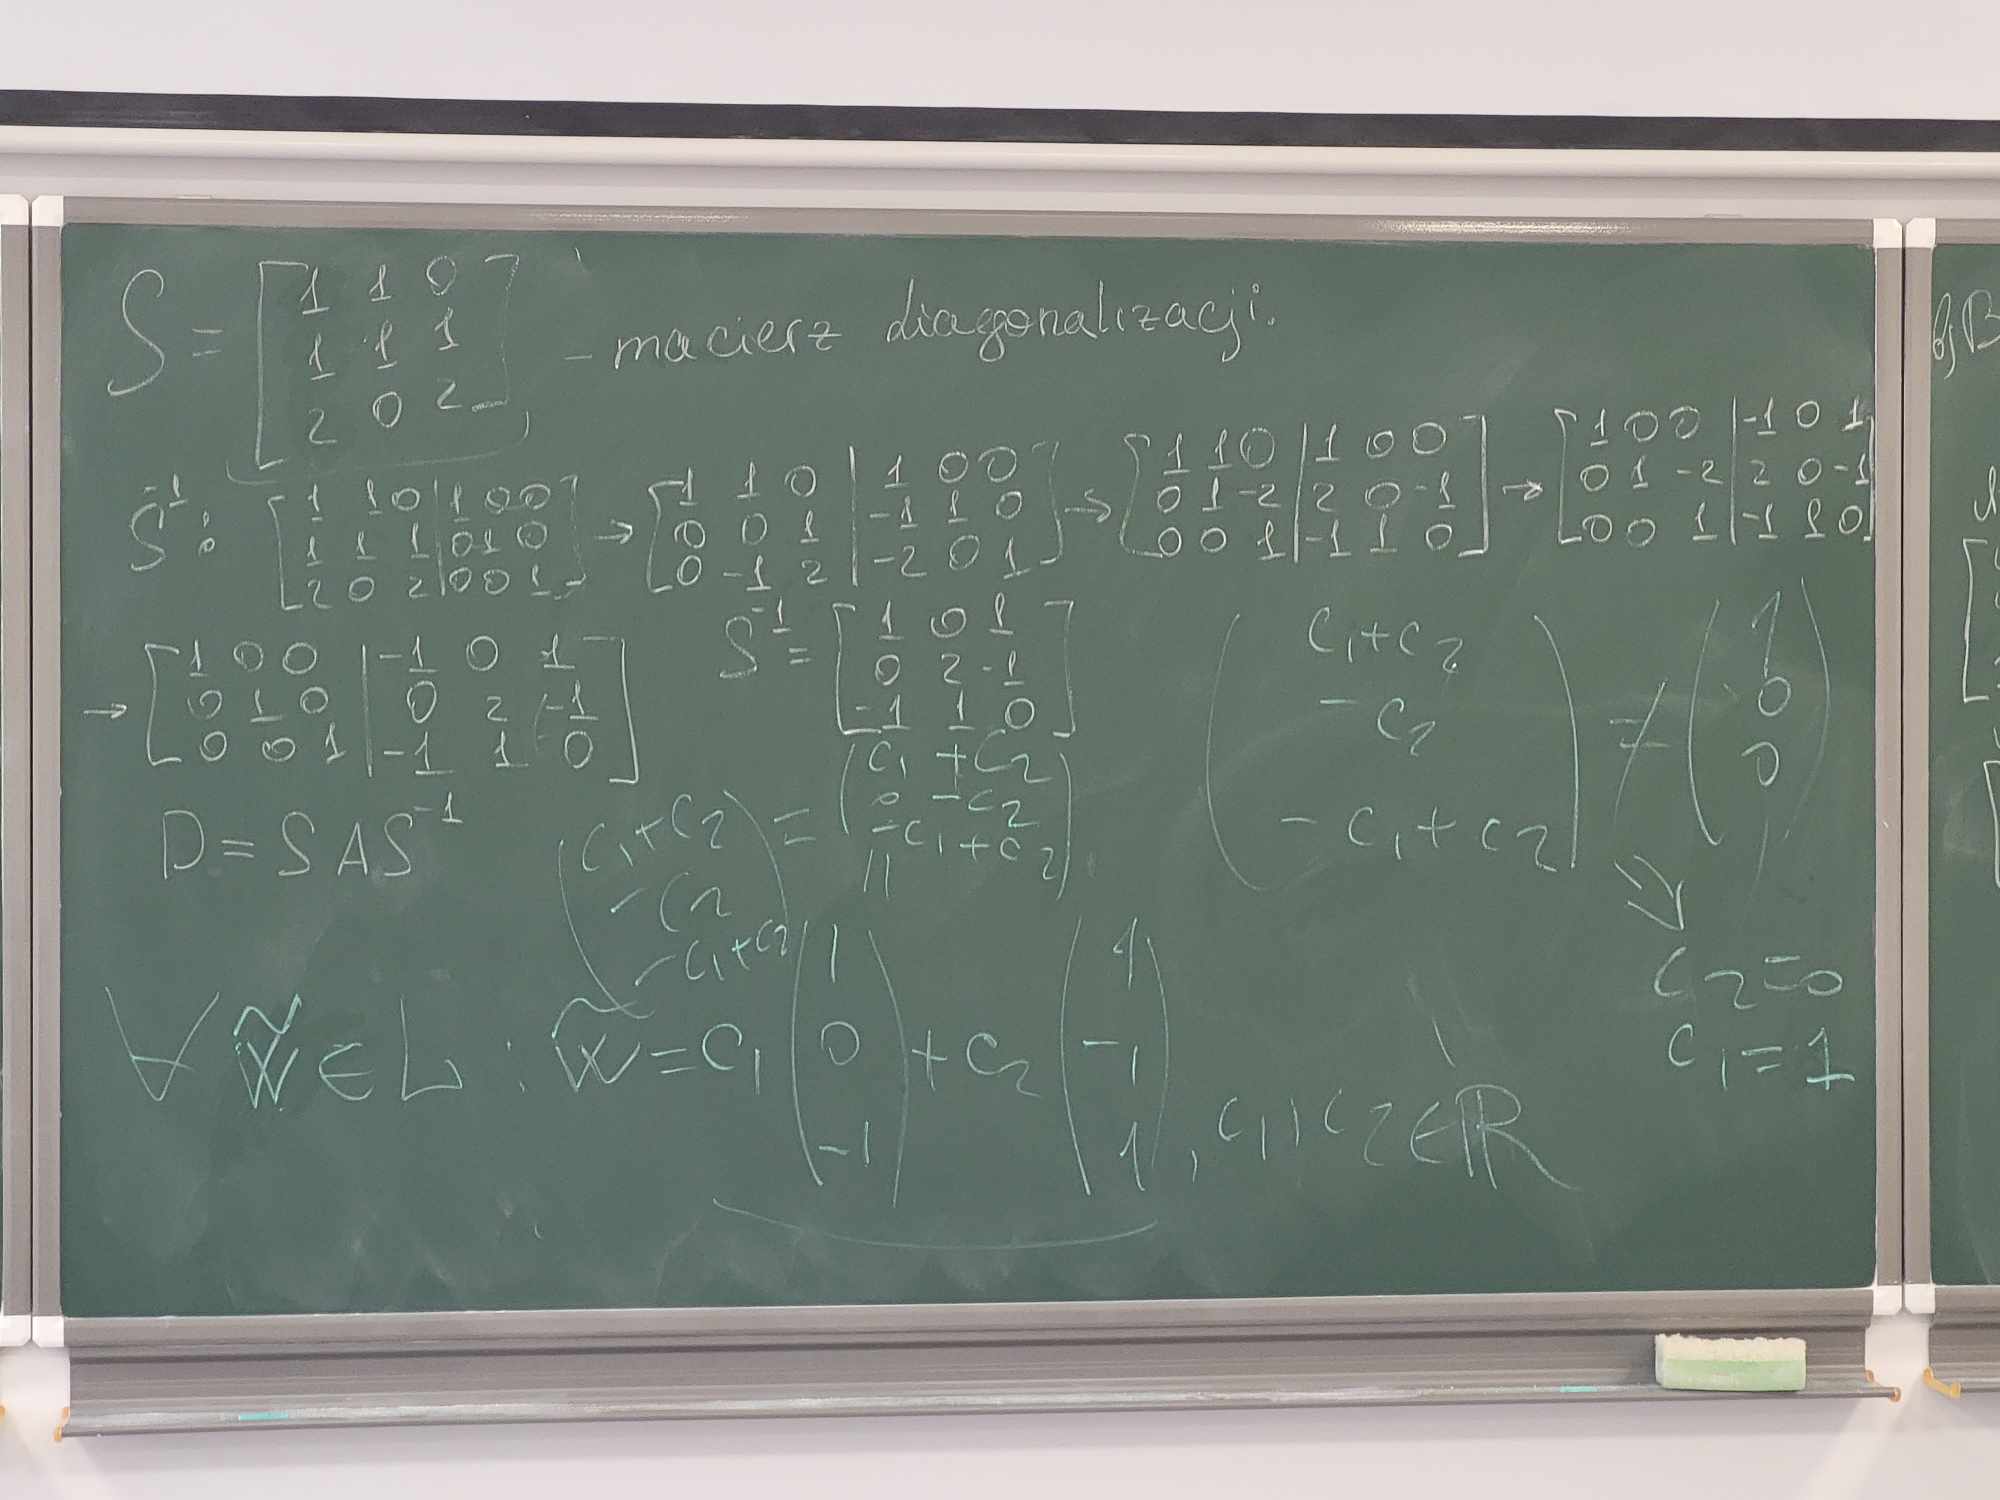 S = [1 1 0; 1 1 1; 2 0 2] – macierz diagonalizacji.
S⁻¹: [1 1 0 | 1 0 0; 1 1 1 | 0 1 0; 2 0 2 | 0 0 1] → [1 1 0 | 1 0 0; 0 0 1 | -1 1 0; 0 -1 2 | -2 0 1] → [1 1 0 | 1 0 0; 0 1 -2 | 2 0 -1; 0 0 1 | -1 1 0] → [1 0 0 | -1 0 1; 0 1 -2 | 2 0 -1; 0 0 1 | -1 1 0]
→ [1 0 0 | -1 0 1; 0 1 0 | 0 2 -1; 0 0 1 | -1 1 0]
S⁻¹ = [1 0 1; 0 2 -1; -1 1 0]
D = SAS⁻¹
(c₁+c₂; -c₂; -c₁+c₂) = (c₁+c₂; 0-c₂; -c₁+c₂)
||
(c₁+c₂; -c₂; -c₁+c₂) ≠ (1; 0; 0)
⇒
c₂=0
c₁=1
∀ w̃ ∈ L : w̃ = c₁ (1; 0; -1) + c₂ (1; -1; 1), c₁, c₂ ∈ ℝ
b) B